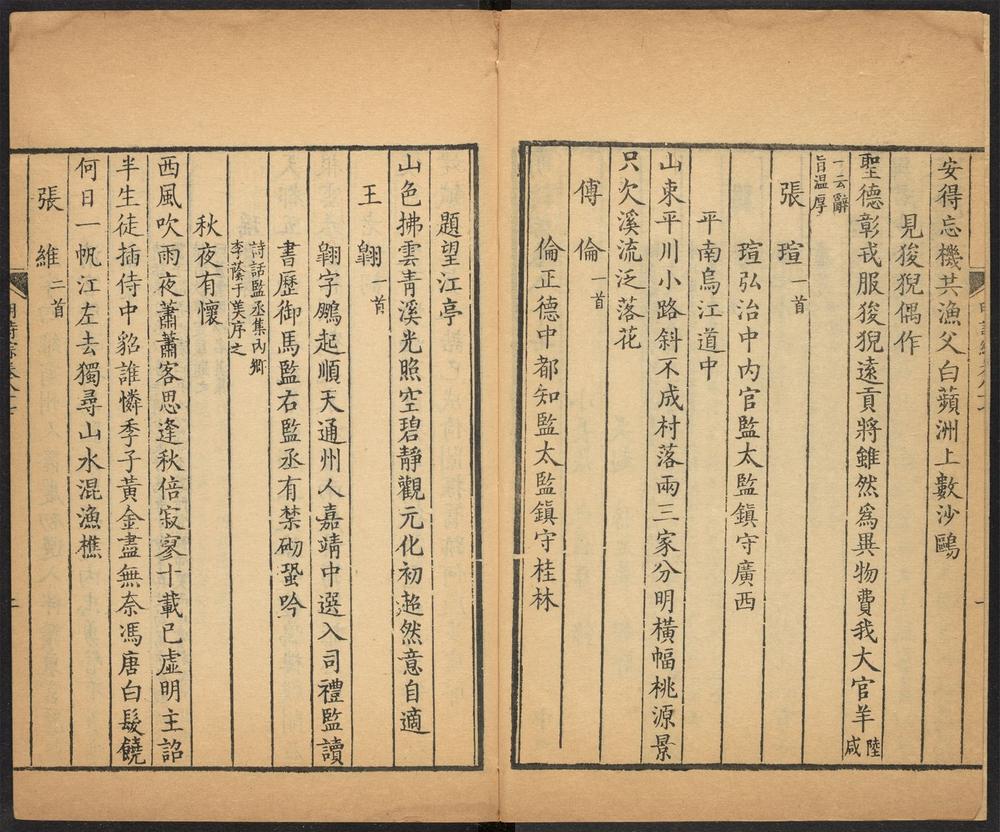 安得忘機共漁父白蘋洲上數沙鷗
見狻猊偶作
聖德彰戎服狻猊遠貢將雖然爲異物費我大官羊陸咸
一云辭旨温厚
張瑄一首
瑄弘治中内官監太監鎮守廣西
平南烏江道中
山東平川小路斜不成村落兩三家分明橫幅桃源景
只欠溪流泛落花
傅倫一首
倫正德中都知監太監鎮守桂林
題望江亭
山色拂雲青溪光照空碧靜觀元化初超然意自適
王翱一首
翱字鵬起順天通州人嘉靖中選入司禮監讀
書歷御馬監右監丞有禁砌蛩吟
詩話監丞集内鄉
李蔭于美序之
秋夜有懷
西風吹雨夜蕭蕭客思逢秋倍寂寥十載已虛明主詔
半生徒插侍中貂誰憐季子黃金盡無奈馮唐白髮饒
何日一帆江左去獨尋山水混漁樵
張維二首